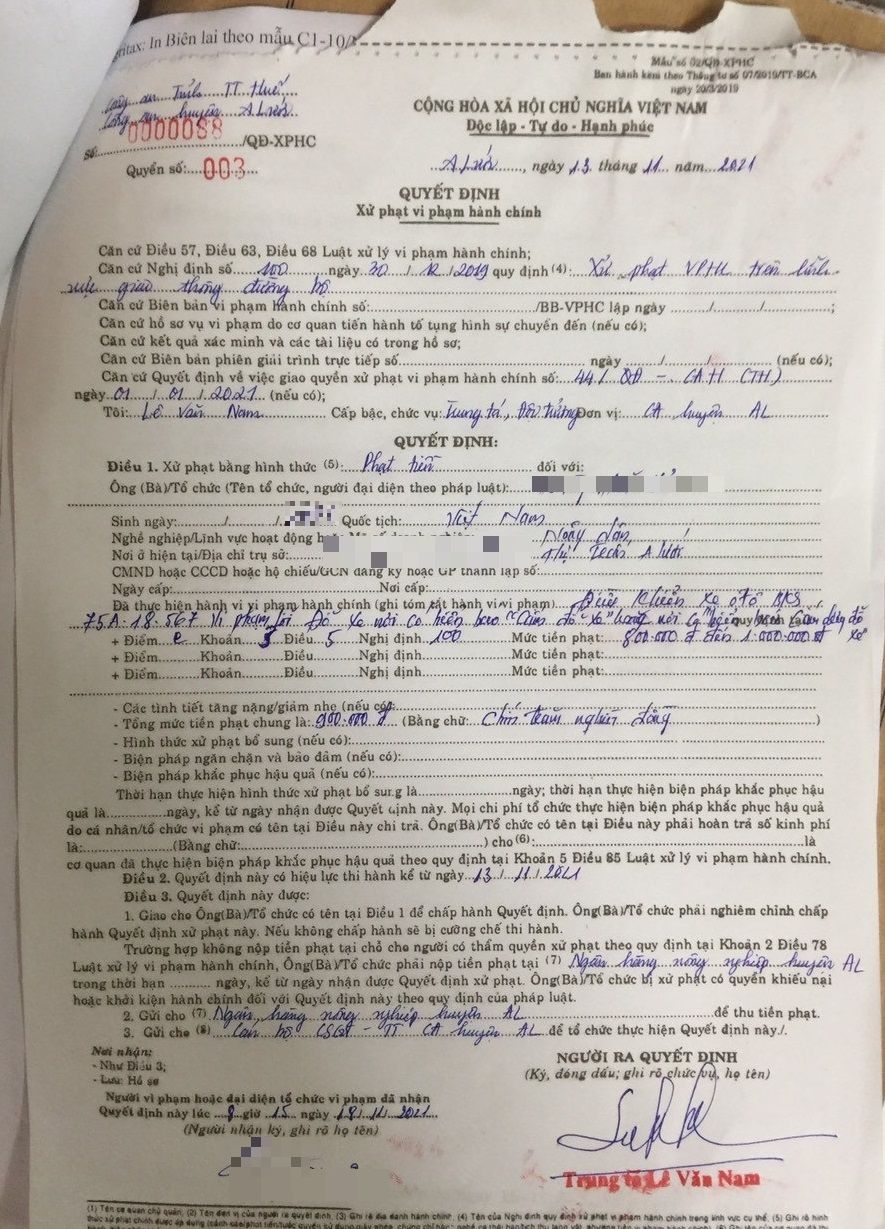 gritax: In Biên lai theo mẫu C1-10/
Mẫu số 02/QĐ-XPHC
Ban hành kèm theo Thông tư số 07/2019/TT-BCA
ngày 20/3/2019
Công an Tỉnh TT Huế
Công an huyện A Lưới
CỘNG HÒA XÃ HỘI CHỦ NGHĨA VIỆT NAM
Độc lập - Tự do - Hạnh phúc
Số: 0000088 /QĐ-XPHC
Quyển số: 003
A Lưới, ngày 13 tháng 11 năm 2021
QUYẾT ĐỊNH
Xử phạt vi phạm hành chính
Căn cứ Điều 57, Điều 63, Điều 68 Luật xử lý vi phạm hành chính;
Căn cứ Nghị định số 100 ngày 30 / 12 / 2019 quy định (4): Xử phạt VPHC trên lĩnh
vực giao thông đường bộ
Căn cứ Biên bản vi phạm hành chính số: /BB-VPHC lập ngày / / ;
Căn cứ hồ sơ vụ vi phạm do cơ quan tiến hành tố tụng hình sự chuyển đến (nếu có);
Căn cứ kết quả xác minh và các tài liệu có trong hồ sơ;
Căn cứ Biên bản phiên giải trình trực tiếp số ngày / / (nếu có);
Căn cứ Quyết định về việc giao quyền xử phạt vi phạm hành chính số: 441 QĐ - CAH (TH)
ngày 01 / 01 / 2021 (nếu có);
Tôi: Lê Văn Nam Cấp bậc, chức vụ: Trung tá, Đội trưởng Đơn vị: CA huyện AL
QUYẾT ĐỊNH:
Điều 1. Xử phạt bằng hình thức (5): Phạt tiền đối với:
Ông (Bà)/Tổ chức (Tên tổ chức, người đại diện theo pháp luật):
Sinh ngày: / / Quốc tịch: Việt Nam
Nghề nghiệp/Lĩnh vực hoạt động
Nơi ở hiện tại/Địa chỉ trụ sở: A Lưới
CMND hoặc CCCD hoặc hộ chiếu/GCN đăng ký hoặc GP thành lập số:
Ngày cấp: Nơi cấp:
Đã thực hiện hành vi vi phạm hành chính (ghi tóm tắt hành vi vi phạm) Điều khiển xe ôtô BKS
75A-18.567 Vi phạm lỗi Đỗ xe nơi có biển báo "Cấm đỗ xe"
+ Điểm e Khoản 3 Điều 5 Nghị định 100 Mức tiền phạt: 800.000 đ đến 1.000.000 đ
+ Điểm Khoản Điều Nghị định Mức tiền phạt:
+ Điểm Khoản Điều Nghị định Mức tiền phạt:
- Các tình tiết tăng nặng/giảm nhẹ (nếu có):
- Tổng mức tiền phạt chung là: 900.000 đ (Bằng chữ: Chín trăm nghìn đồng )
- Hình thức xử phạt bổ sung (nếu có):
- Biện pháp ngăn chặn và bảo đảm (nếu có):
- Biện pháp khắc phục hậu quả (nếu có):
Thời hạn thực hiện hình thức xử phạt bổ sung là ngày; thời hạn thực hiện biện pháp khắc phục hậu
quả là ngày, kể từ ngày nhận được Quyết định này. Mọi chi phí tổ chức thực hiện biện pháp khắc phục hậu quả
do cá nhân/tổ chức vi phạm có tên tại Điều này chi trả. Ông(Bà)/Tổ chức có tên tại Điều này phải hoàn trả số kinh phí
là: (Bằng chữ: ) cho (6): là
cơ quan đã thực hiện biện pháp khắc phục hậu quả theo quy định tại Khoản 5 Điều 85 Luật xử lý vi phạm hành chính.
Điều 2. Quyết định này có hiệu lực thi hành kể từ ngày 13 / 11 / 2021
Điều 3. Quyết định này được:
1. Giao cho Ông(Bà)/Tổ chức có tên tại Điều 1 để chấp hành Quyết định. Ông(Bà)/Tổ chức phải nghiêm chỉnh chấp
hành Quyết định xử phạt này. Nếu không chấp hành sẽ bị cưỡng chế thi hành.
Trường hợp không nộp tiền phạt tại chỗ cho người có thẩm quyền xử phạt theo quy định tại Khoản 2 Điều 78
Luật xử lý vi phạm hành chính, Ông(Bà)/Tổ chức phải nộp tiền phạt tại (7) Ngân hàng nông nghiệp huyện AL
trong thời hạn ngày, kể từ ngày nhận được Quyết định xử phạt. Ông(Bà)/Tổ chức bị xử phạt có quyền khiếu nại
hoặc khởi kiện hành chính đối với Quyết định này theo quy định của pháp luật.
2. Gửi cho (7) Ngân hàng nông nghiệp huyện AL để thu tiền phạt.
3. Gửi cho (8) Cán bộ CSGT - TT CA huyện AL để tổ chức thực hiện Quyết định này./.
Nơi nhận:
- Như Điều 3;
- Lưu: Hồ sơ
NGƯỜI RA QUYẾT ĐỊNH
(Ký, đóng dấu; ghi rõ chức vụ, họ tên)
Người vi phạm hoặc đại diện tổ chức vi phạm đã nhận
Quyết định này lúc 8 giờ 15 ngày 18/11/2021
(Người nhận ký, ghi rõ họ tên)
Trung tá Lê Văn Nam
(1) Tên cơ quan chủ quản, (2) Tên đơn vị của người ra quyết định, (3) Ghi rõ địa danh hành chính,